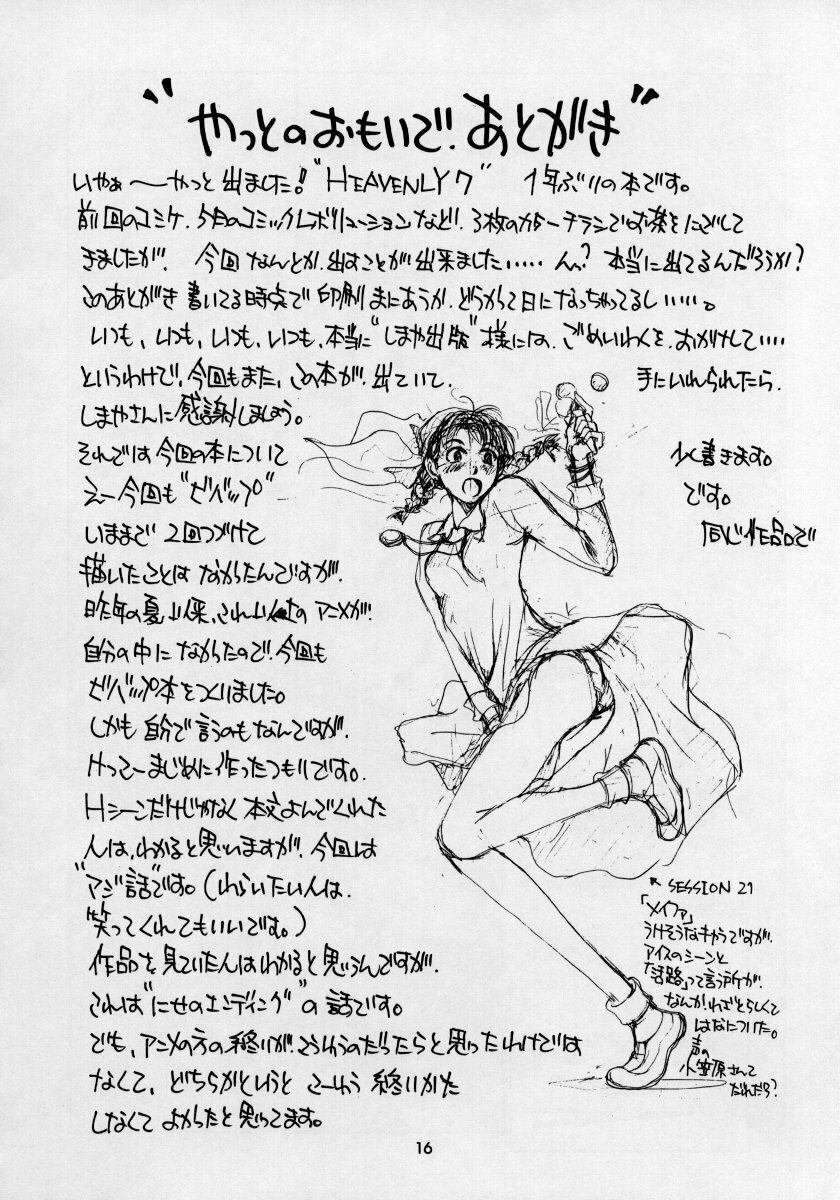 "やっとのおもいで!あとがき"
いやぁ〜やっと出ました!"HEAVENLY 7" 1年ぶりの本です。
前回のコミケ、5月のコミックレボリューションなど!3枚のカラーチラシでお茶をにごして
きましたが!今回なんとか、出すことが出来ました……ん?本当に出てるんだろうか?
このあとがき書いてる時点で印刷まにあうか、どうかって日になっちゃってるし……。
いつも、いつも、いつも、いつも、本当に"しまや出版"様には、ごめいわくを、おかけして……
というわけで、今回もまた、この本が、出ていて、手にいれられたら、
しまやさんに感謝しましょう。
それでは今回の本について 少し書きます。
えー今回も"ビバップ" です。
いままで2回つづけて 同じ作品で
描いたことはなかったんですが、
昨年の夏以来、これ以上のアニメが!
自分の中になかったので!今回も
ビバップ本をつくりました。
しかも自分で言うのもなんですが、
けっこーまじめに作ったつもりです。
Hシーンだけじゃなく本文よんでくれた
人は、わかると思いますが、今回は
"マジ話"です。(わらいたい人は、
笑ってくれてもいいです。)
作品を見ていた人はわかると思うんですが、
これは"にせのエンディング"の話です。
でも、アニメの方の終りが、こういうのだったらと思ったわけでは
なくて、どちらかというとこーゆう終いかた
しなくてよかったと思ってます。
↖ SESSION 21
「メイファ」
うけそうなキャラですが、
アイスのシーンと
「活路」って言う所が、
なんか、わざとらしくて
はなについた。
声の
小笠原さんて
だれだろ?
16